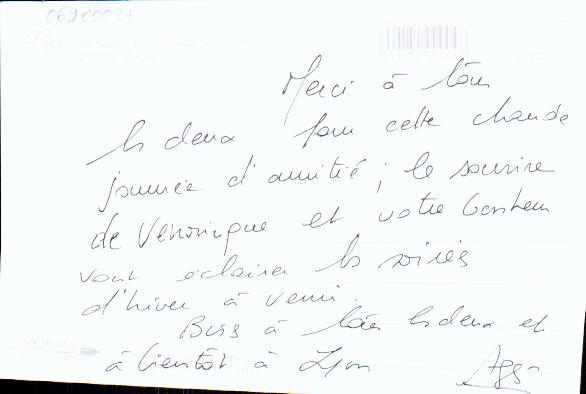 06900021
Lyon
Merci à tous
les deux pour cette chaude
journée d'amitié ; le sourire
de Véronique et votre bonheur
vont éclairer les soirées
d'hiver à venir.
Bises à tous les deux et
à bientôt à Lyon